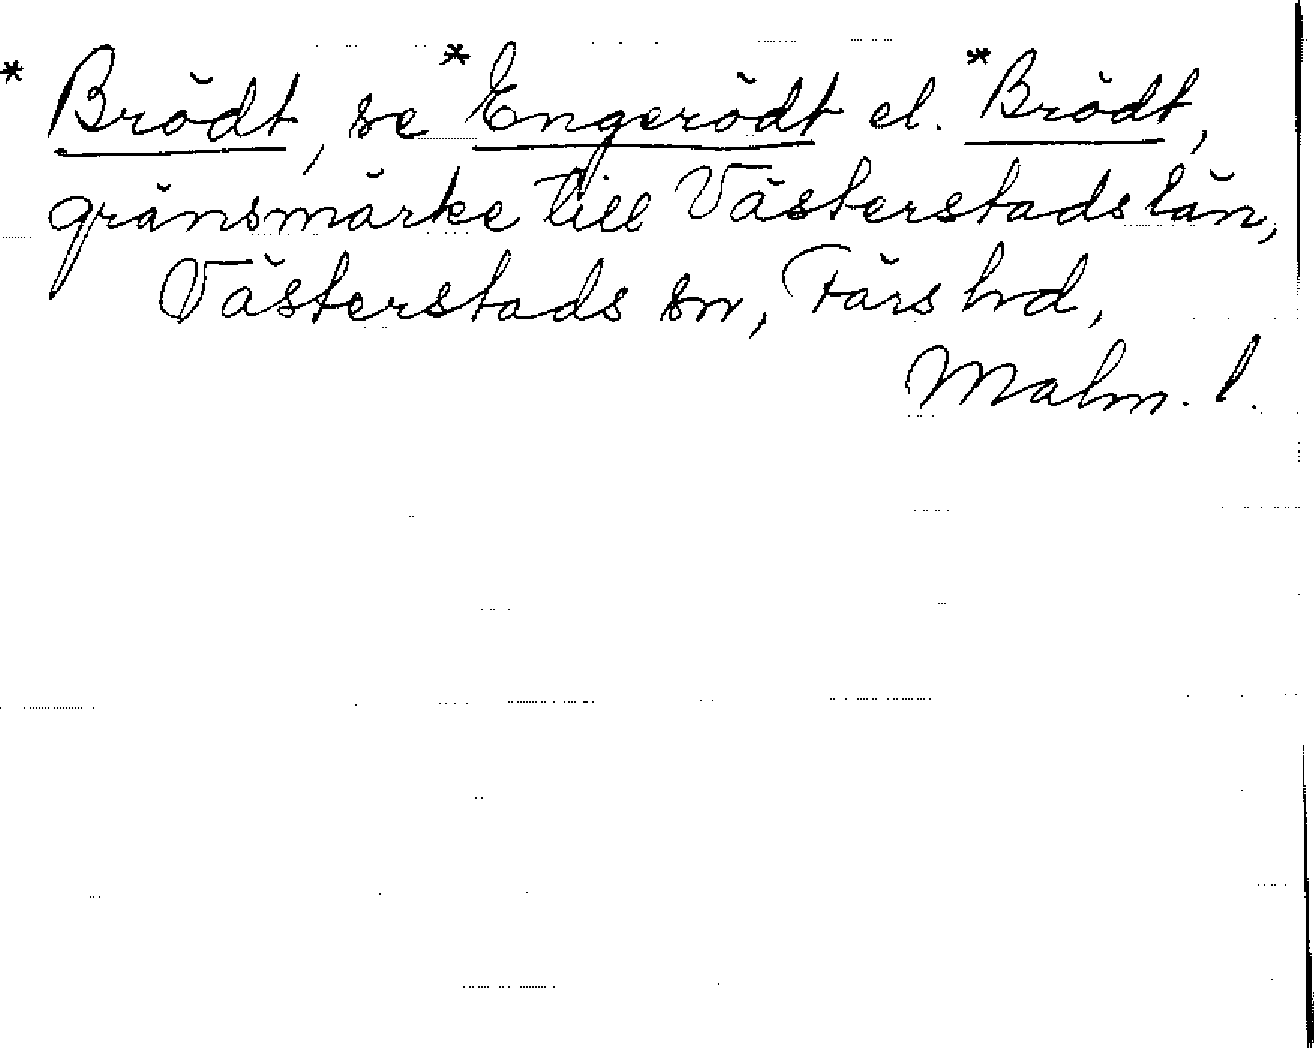 * Brödt, se *Engerödt el. *Brödt,
gränsmärke till Västerstads län,
Västerstads sn, Färs hd,
Malm. l.